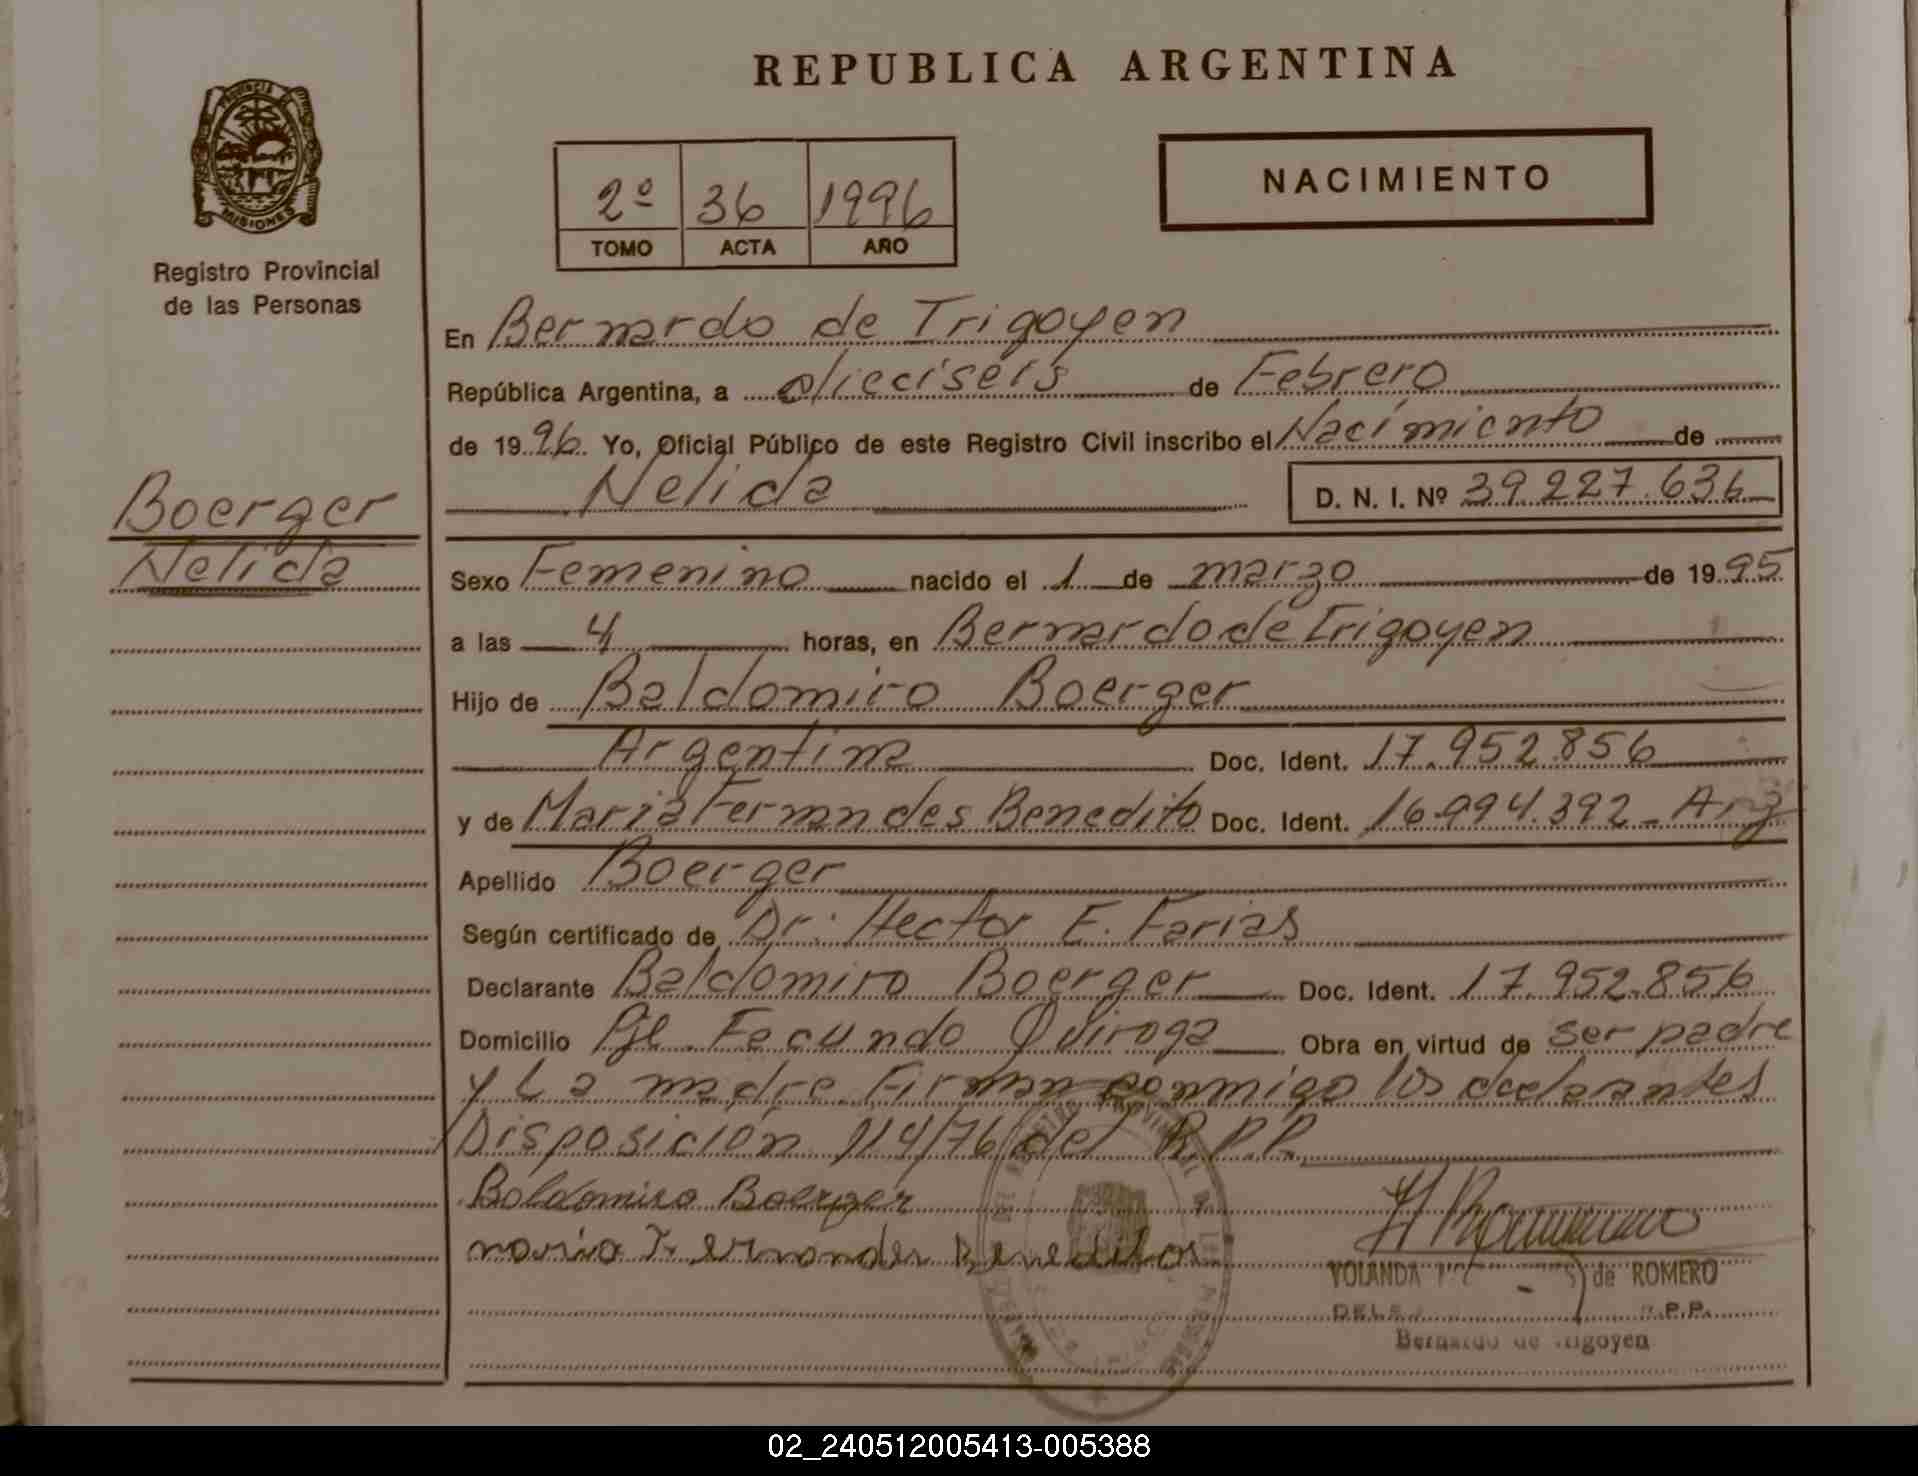 REPUBLICA ARGENTINA
PROVINCIA DE
MISIONES
Registro Provincial
de las Personas
2º 36 1996
TOMO ACTA AÑO
NACIMIENTO
Boerger
Nelida
En Bernardo de Irigoyen
República Argentina, a dieciseis de Febrero
de 1996 Yo, Oficial Público de este Registro Civil inscribo el Nacimiento de
Nelida D. N. I. Nº 39 227.636
Sexo Femenino nacido el 1 de marzo de 1995
a las 4 horas, en Bernardo de Irigoyen
Hijo de Baldomiro Boerger
Argentina Doc. Ident. 17.952.856
y de Maria Fernandes Benedito Doc. Ident. 16.994.392 - Arg
Apellido Boerger
Según certificado de Dr. Hector E. Farias
Declarante Baldomiro Boerger Doc. Ident. 17.952.856
Domicilio Pje. Facundo Quiroga Obra en virtud de ser padre
y La madre. Firman conmigo los declarantes
Disposición 114/76 del R.P.P.
Baldomiro Boerger
maria Fernandes Beneditos
YOLANDA de ROMERO
R.P.P.
Bernardo de Irigoyen
02_240512005413-005388